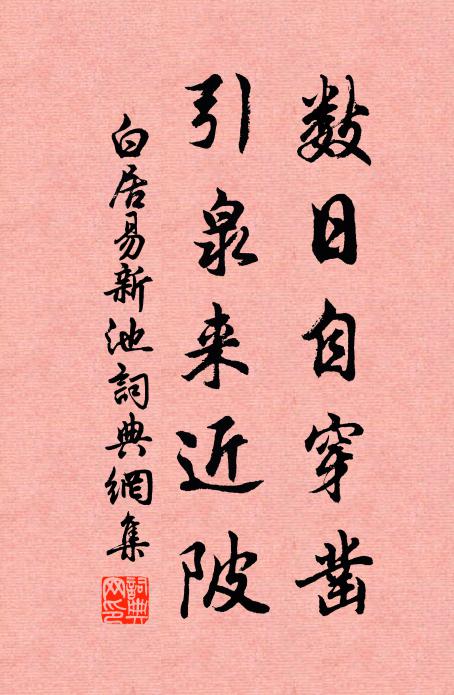 数日自穿凿
引泉来近陂
白居易新池詞典網集
詞典网印